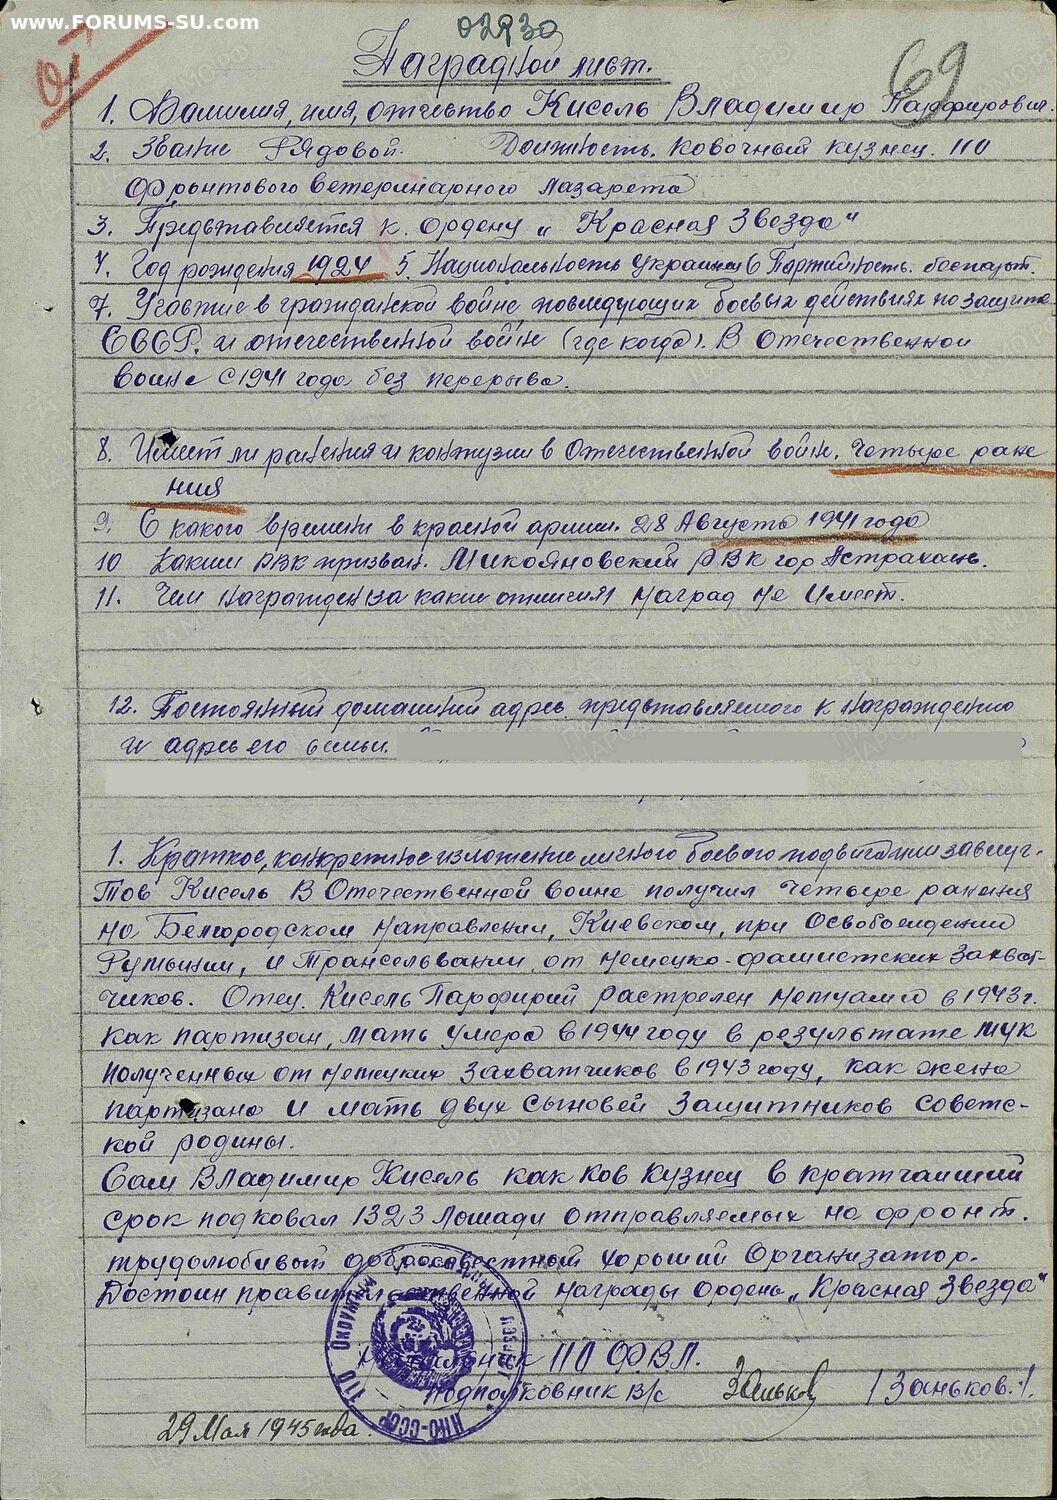 www.FORUMS-SU.com
02930
69
Наградной лист.
1. Фамилия, имя, отчество Кисель Владимир Парфирович.
2. Звание Рядовой. Должность. Ковочный кузнец. 110
фронтового ветеринарного лазарета
3. Представляется к ордену „Красная Звезда"
4. Год рождения 1924 5. Национальность украинец 6 Партийность. беспарт.
7. Участие в гражданской войне, последующих боевых действиях по защите
СССР. и отечественной войне (где когда). В Отечественной
воине с 1941 года без перерыва.
8. Имеет ли ранения и контузии в Отечественной войне. Четыре ране
ния
9. С какого времени в красной армии. 28 Августа 1941 года
10 Каким РВК призван. Микояновский РВК гор Астрахань.
11. Чем награжден за какие отличия наград не имеет.
12. Постоянный домашний адрес представляемого к награждению
и адрес его семьи.
1. Краткое, конкретное изложение личного боевого подвига или заслуг.
Тов Кисель В Отечественной воине получил четыре ранения
на Белгородском направлении, Киевском, при освобождении
Румынии, и Трансельвании от немецко-фашистских захват-
чиков. Отец Кисель Парфирий растрелен немцами в 1943 г.
как партизан, мать умера в 1944 году в результате мук
полученных от немецких захватчиков в 1943 году, как жена
партизана и мать двух сыновей защитников совете-
кой родины.
Сам Владимир Кисель как ков кузнец в кратчаишии
срок подковал 1323 лошади отправляемых на фронт.
трудолюбивый добросовестный хороший организатор.
Достоин правительственной награды ордена „Красная Звезда"
Начальник 110 ФВЛ.
подполковник в/с Заньков /Заньков./
110 Окружной
НКО-СССР
29 Мая 1945 года.